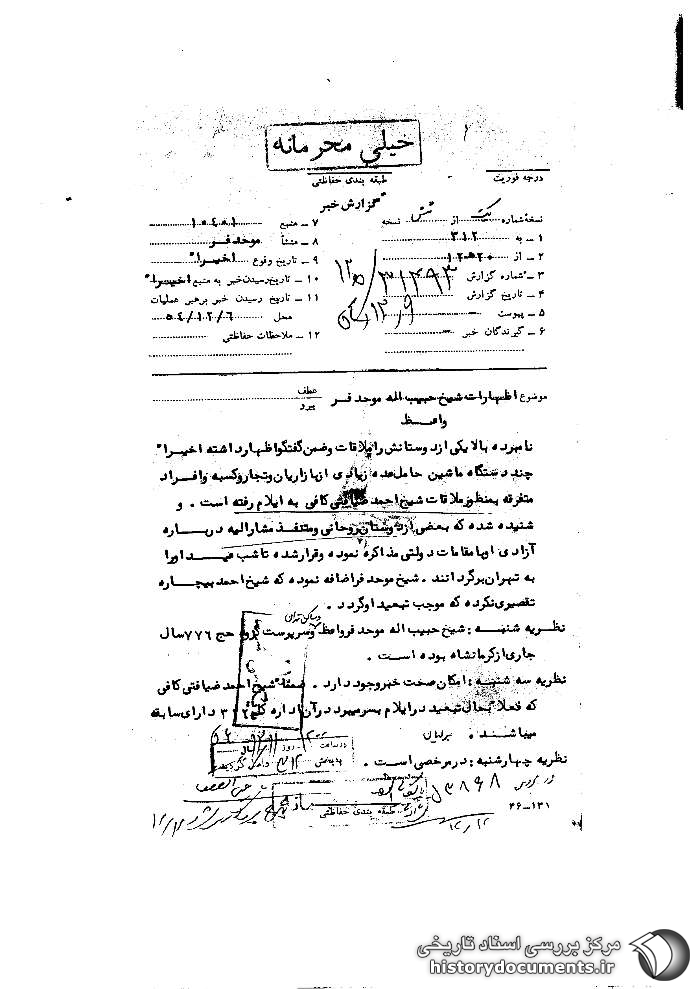 خیلی محرمانه
طبقه بندی حفاظتی
درجه فوریت
گزارش خبر
نسخه شماره یک از شش نسخه
۱ ـ به ۳۱۲
۲ ـ از
۳ ـ شماره گزارش
۴ ـ تاریخ گزارش
۵ ـ پیوست
۶ ـ گیرندگان خبر
۷ ـ منبع ۱۰۴۰۱
۸ ـ منشأ موحد فر
۹ ـ تاریخ وقوع اخیراً
۱۰ ـ تاریخ رسیدن خبر به منبع اخیراً
۱۱ ـ تاریخ رسیدن خبر برهبر عملیات
محل ۵۴/۱۲/۶
۱۲ ـ ملاحظات حفاظتی
موضوع اظهارات شیخ حبیب اله موحد فر
عطف
پیرو
واعظ
نامبرده بالا یکی از دوستانش را ملاقات وضمن گفتگو اظهارداشته اخیراً
چند دستگاه ماشین حامل عده زیادی از بازاریان وتجار وکسبه وافراد
متفرقه بمنظور ملاقات شیخ احمد ضیافتی کافی به ایلام رفته است . و
شنیده شده که بعضی از دوستان روحانی ومتنفذ مشارالیه درباره
آزادی او با مقامات دولتی مذاکره نموده وقرار شده تا شب عید اورا
به تهران برگردانند . شیخ موحد فر اضافه نموده که شیخ احمد بیچاره
تقصیری نکرده که موجب تبعید او گردد .
نظریه شنبه : شیخ حبیب اله موحد فر واعظ وساکن تهران وسرپرست گروه حج ۷۷۶ سال
جاری از کرمانشاه بوده است .
نظریه سه شنبه : امکان صحت خبر وجود دارد . ضمناً شیخ احمد ضیافتی کافی
که فعلا بحال تبعید در ایلام بسر میبرد در آن اداره کل ۳۱۲ دارای سابقه
میباشند .
نظریه چهارشنبه : در مرخصی است .
طبقه بندی حفاظتی
۴۶-۱۳۱
مرکز بررسی اسناد تاریخی
historydocuments.ir